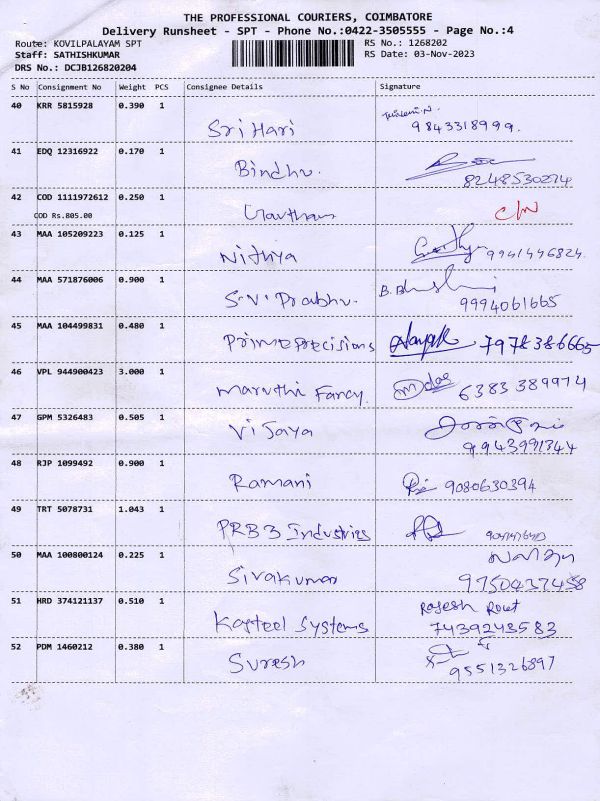 THE PROFESSIONAL COURIERS, COIMBATORE
Delivery Runsheet - SPT - Phone No.:0422-3505555 - Page No.:4
Route: KOVILPALAYAM SPT RS No.: 1268202
Staff: SATHISHKUMAR RS Date: 03-Nov-2023
DRS No.: DCJB126820204
S No Consignment No Weight PCS Consignee Details Signature
40 KRR 5815928 0.390 1 Sri Hari 9843318999.
41 EDQ 12316922 0.170 1 Bindhu. 8248530274
42 COD 1111972612 0.250 1 Gavtham C/N
COD Rs.805.00
43 MAA 105209223 0.125 1 Nithya 9941446824.
44 MAA 571876006 0.900 1 S.V. Prabhu. 9994061665
45 MAA 104499831 0.480 1 Prime precisions 7978386665
46 VPL 944900423 3.000 1 Maruthi Fancy. M das 6383 389974
47 GPM 5326483 0.505 1 Vijaya 9943991344
48 RJP 1099492 0.900 1 Ramani 9080630394
49 TRT 5078731 1.043 1 PRB3 Industries
50 MAA 100800124 0.225 1 Sivakumar 9750437458
51 HRD 374121137 0.510 1 Kasteel Systems Rajesh Rout
7439243583
52 PDM 1460212 0.380 1 Suresh 9551326897